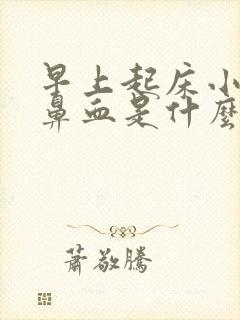 早上起床小
鼻血是什麼
蕭敬騰